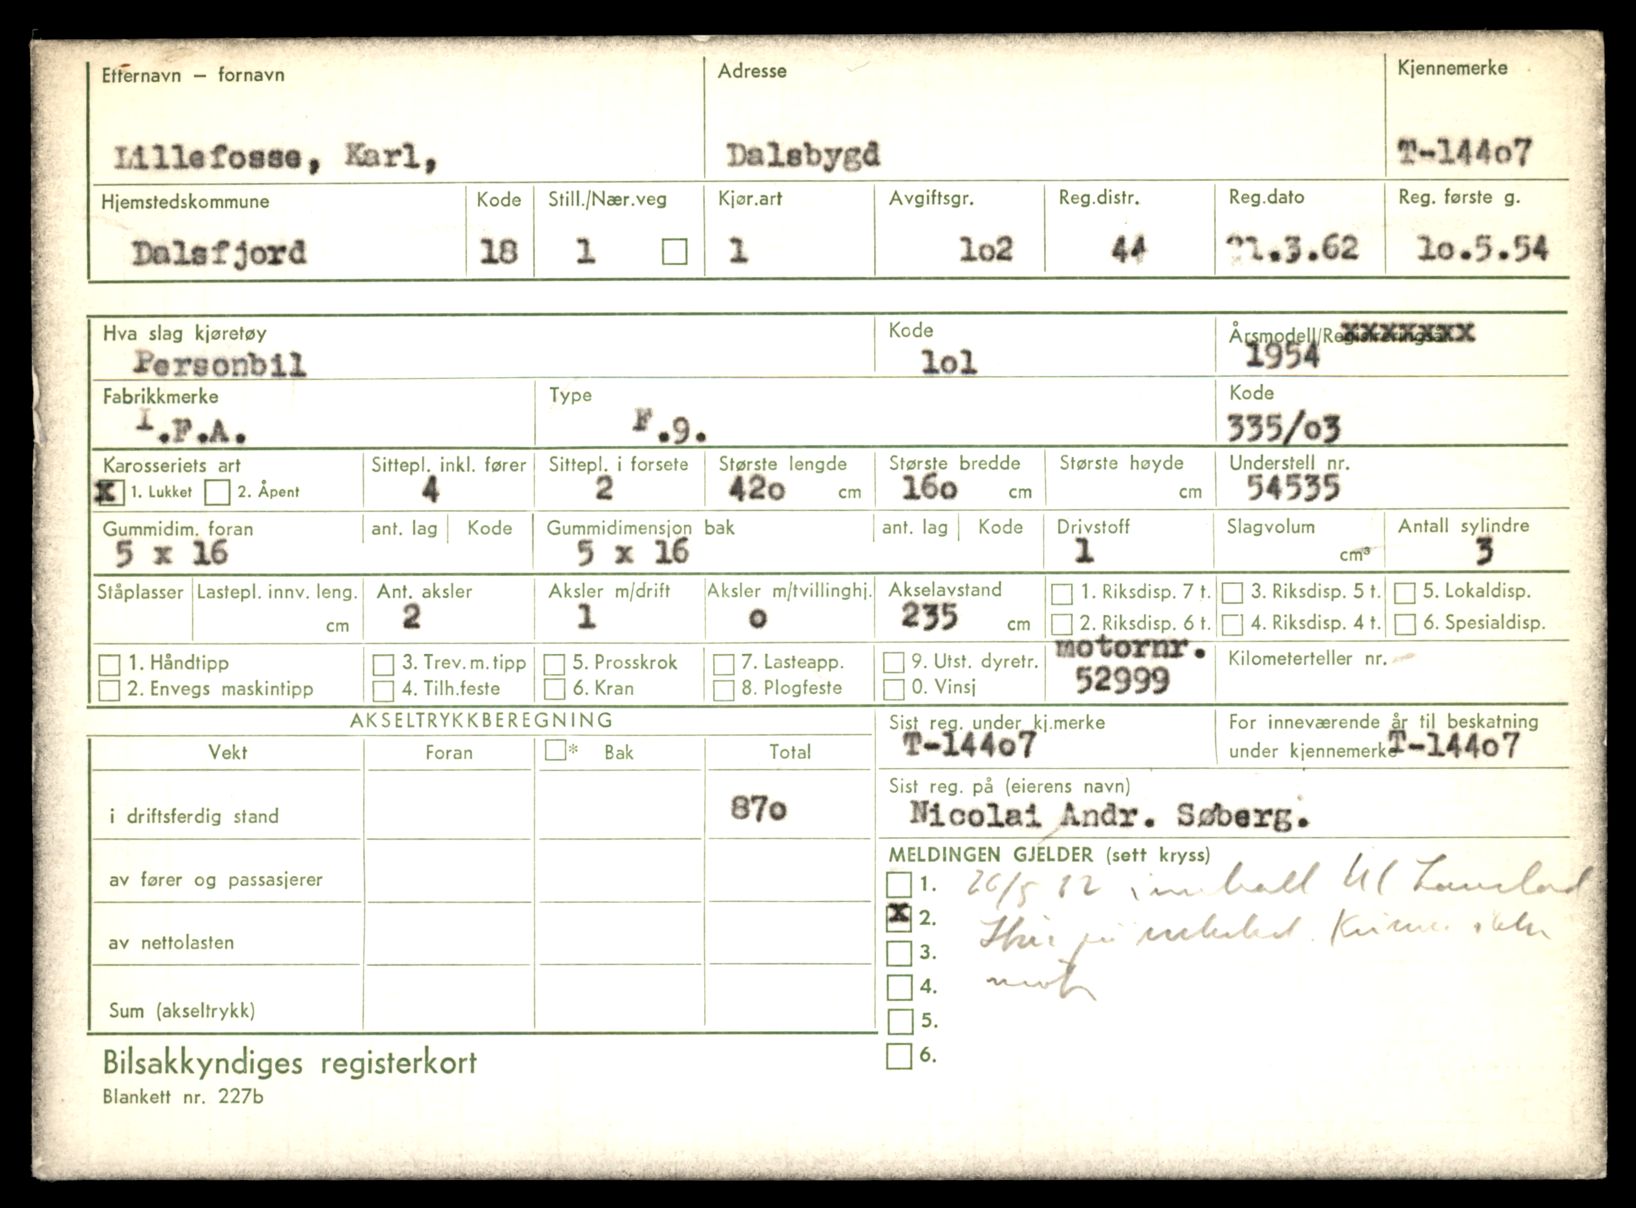 Etternavn – fornavn Adresse Kjennemerke
Lillefosse, Karl, Dalsbygd T-144o7
Hjemstedskommune Kode Still./Nær.veg Kjør.art Avgiftsgr. Reg.distr. Reg.dato Reg. første g.
Dalsfjord 18 1 1 1o2 44 1.3.62 1o.5.54
Hva slag kjøretøy Kode Årsmodell/Registreringsår xxxxxxx
Personbil 1o1 1954
Fabrikkmerke Type Kode
I.F.A. F.9. 335/o3
Karosseriets art Sittepl. inkl. fører Sittepl. i forsete Største lengde Største bredde Største høyde Understell nr.
x 1. Lukket 2. Åpent 4 2 42o cm 16o cm cm 54535
Gummidim. foran ant. lag Kode Gummidimensjon bak ant. lag Kode Drivstoff Slagvolum Antall sylindre
5 x 16 5 x 16 1 cm³ 3
Ståplasser Lastepl. innv. leng. Ant. aksler Aksler m/drift Aksler m/tvillinghj. Akselavstand 1. Riksdisp. 7 t. 3. Riksdisp. 5 t. 5. Lokaldisp.
cm 2 1 o 235 cm 2. Riksdisp. 6 t. 4. Riksdisp. 4 t. 6. Spesialdisp.
1. Håndtipp 3. Trev. m. tipp 5. Prosskrok 7. Lasteapp. 9. Utst. dyretr. motornr. Kilometerteller nr.
2. Envegs maskintipp 4. Tilh.feste 6. Kran 8. Plogfeste 0. Vinsj 52999
AKSELTRYKKBEREGNING Sist reg. under kj.merke For inneværende år til beskatning
T-144o7 under kjennemerke T-144o7
Vekt Foran * Bak Total
Sist reg. på (eierens navn)
i driftsferdig stand 87o Nicolai Andr. Søberg.
MELDINGEN GJELDER (sett kryss)
av fører og passasjerer 1.
x 2.
av nettolasten 3.
4.
Sum (akseltrykk) 5.
6.
Bilsakkyndiges registerkort
Blankett nr. 227b